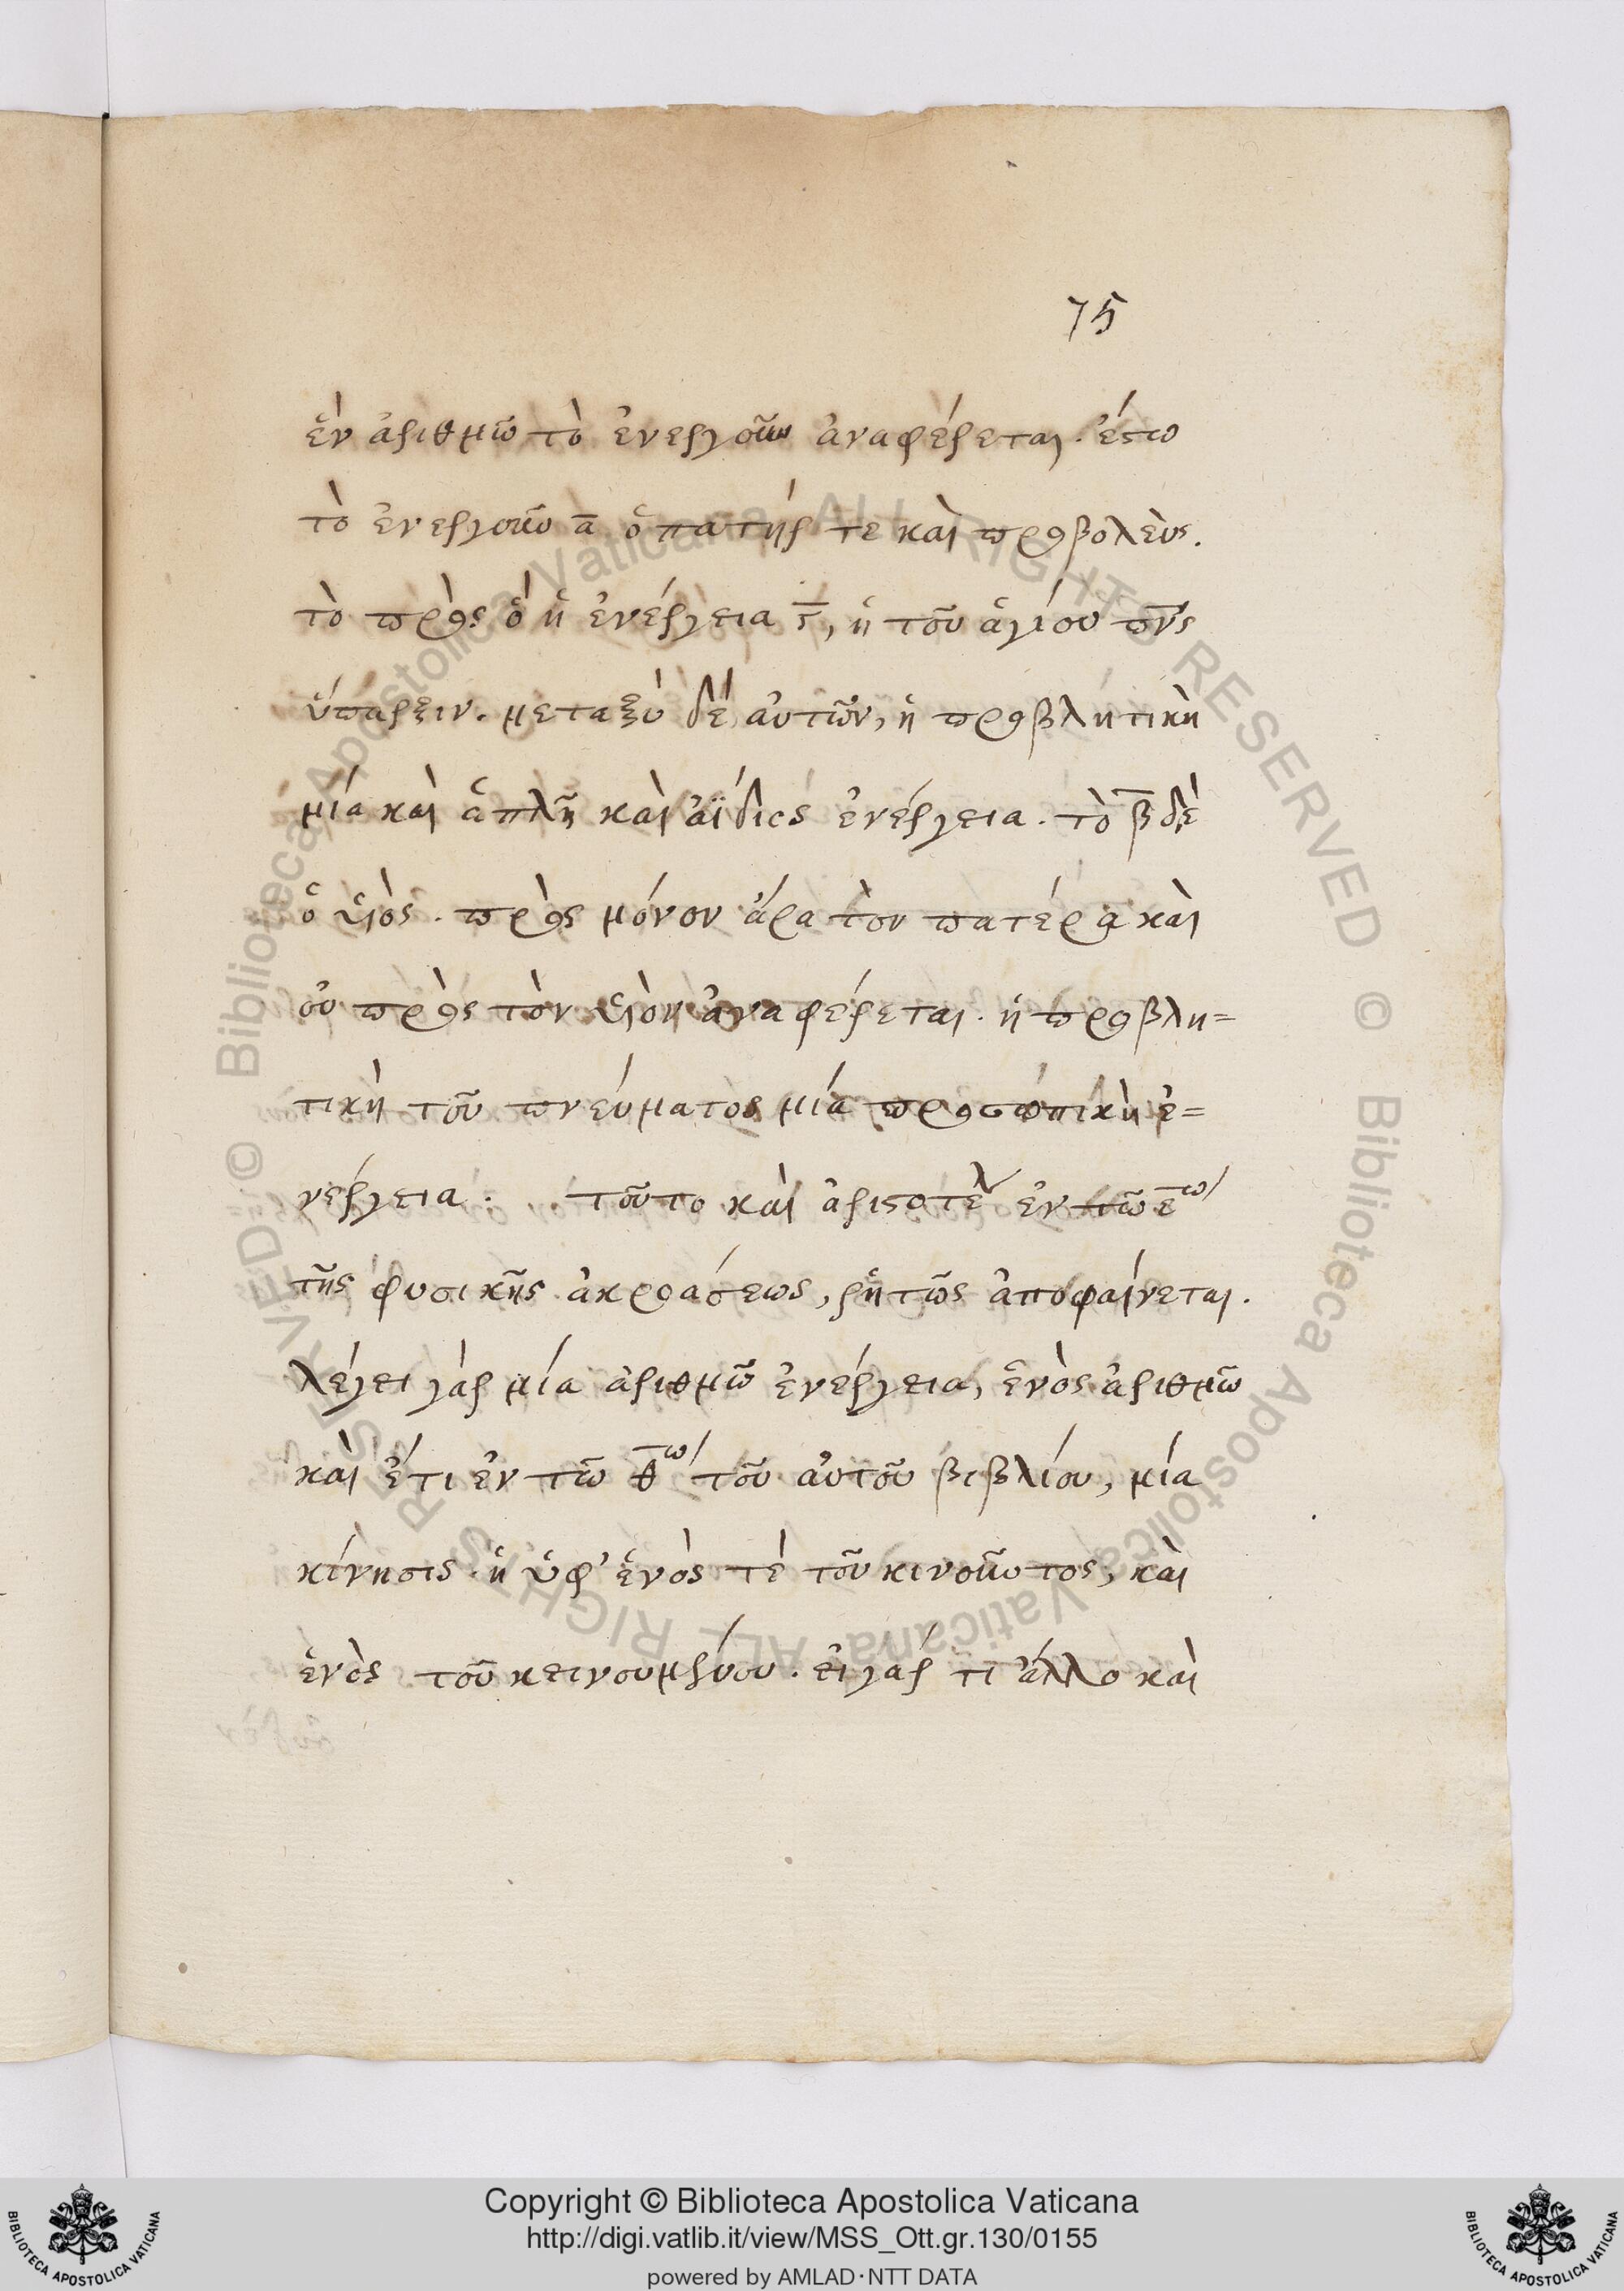 75
ἓν ἀριθμῶ τὸ ἐνεργοῦν ἀναφέρεται. ἔστω
τὸ ἐνεργοῦν α̅ ὁ πατήρ τε καὶ προβολεὺς.
τὸ πρὸς ὃ ἡ ἐνέργεια γ̅, ἡ τοῦ ἁγίου πν̅ς
ὕπαρξιν. μεταξὺ δὲ αὐτῶν, ἡ προβλητικὴ
μία καὶ ἁπλῆ καὶ ἀΐδιος ἐνέργεια. τὸ β̅ δὲ
ὁ υἱὸς. πρὸς μόνον ἄρα τὸν πατέρα καὶ
οὐ πρὸς τὸν υἱὸν ἀναφέρεται. ἡ προβλη=
τικὴ τοῦ πνεύματος μία προσωπικὴ ἐ=
νέργεια. τοῦτο καὶ ἀριστοτέλ ἐν τῶ ε̅ω
τῆς φυσικῆς ἀκροάσεως, ῥητῶς ἀποφαίνεται.
λέγει γὰρ μία ἀριθμῶ ἐνέργεια, ἑνὸς ἀριθμῶ
καὶ ἔτι ἐν τῶ θ̅ω τοῦ αὐτοῦ βιβλίου, μία
κίνησις ἡ ὑφ' ἑνὸς τὲ τοῦ κινοῦντος, καὶ
ἑνὸς τοῦ κεινουμένου. εἰ γάρ τι ἄλλο καὶ
Copyright © Biblioteca Apostolica Vaticana
http://digi.vatlib.it/view/MSS_Ott.gr.130/0155
powered by AMLAD·NTT DATA
BIBLIOTECA APOSTOLICA VATICANA
BIBLIOTECA APOSTOLICA VATICANA
© Biblioteca Apostolica Vaticana ALL RIGHTS RESERVED © Biblioteca Apostolica Vaticana ALL RIGHTS RESERVED